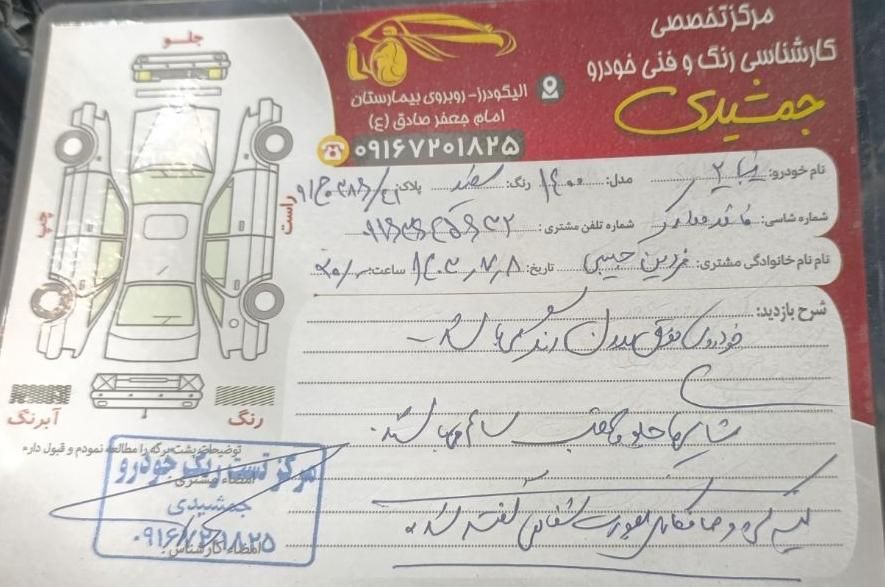 مرکز تخصصی
کارشناسی رنگ و فنی خودرو
جمشیدی
الیگودرز - روبروی بیمارستان
امام جعفر صادق (ع)
۰۹۱۶۷۲۰۱۸۲۵
جلو
راست
چپ
رنگ
آبرنگ
نام خودرو: تیبا ۲ مدل: ۱۴۰۰ رنگ: سفید پلاک:
شماره شاسی: شماره تلفن مشتری:
نام نام خانوادگی مشتری: فردین حبیبی تاریخ: ۱۴۰۳٫۷٫۸ ساعت:
شرح بازدید:
خودروی فوق بدون رنگ میباشد
شاسی‌ها جلو و عقب سالم میباشد
بصورت شفاهی گفته شد
توضیحات پشت برگه را مطالعه نمودم و قبول دارم
امضاء مشتری:
امضاء کارشناس:
مرکز تست رنگ خودرو
جمشیدی
۰۹۱۶۷۲۰۱۸۲۵